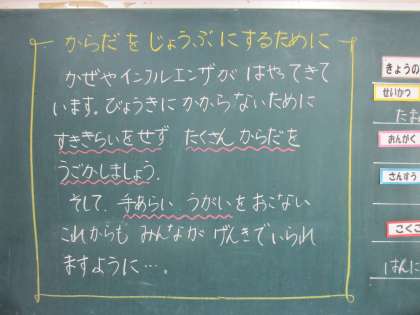 からだをじょうぶにするために
かぜやインフルエンザが はやってきて
います。びょうきに かからないために
すききらいをせず たくさん からだを
うごかしましょう。
そして 手あらい うがいを おこない
これからも みんなが げんきでいられ
ますように…。
きょうの
せいかつ
たま
おんがく
さんすう
こくご
はんに